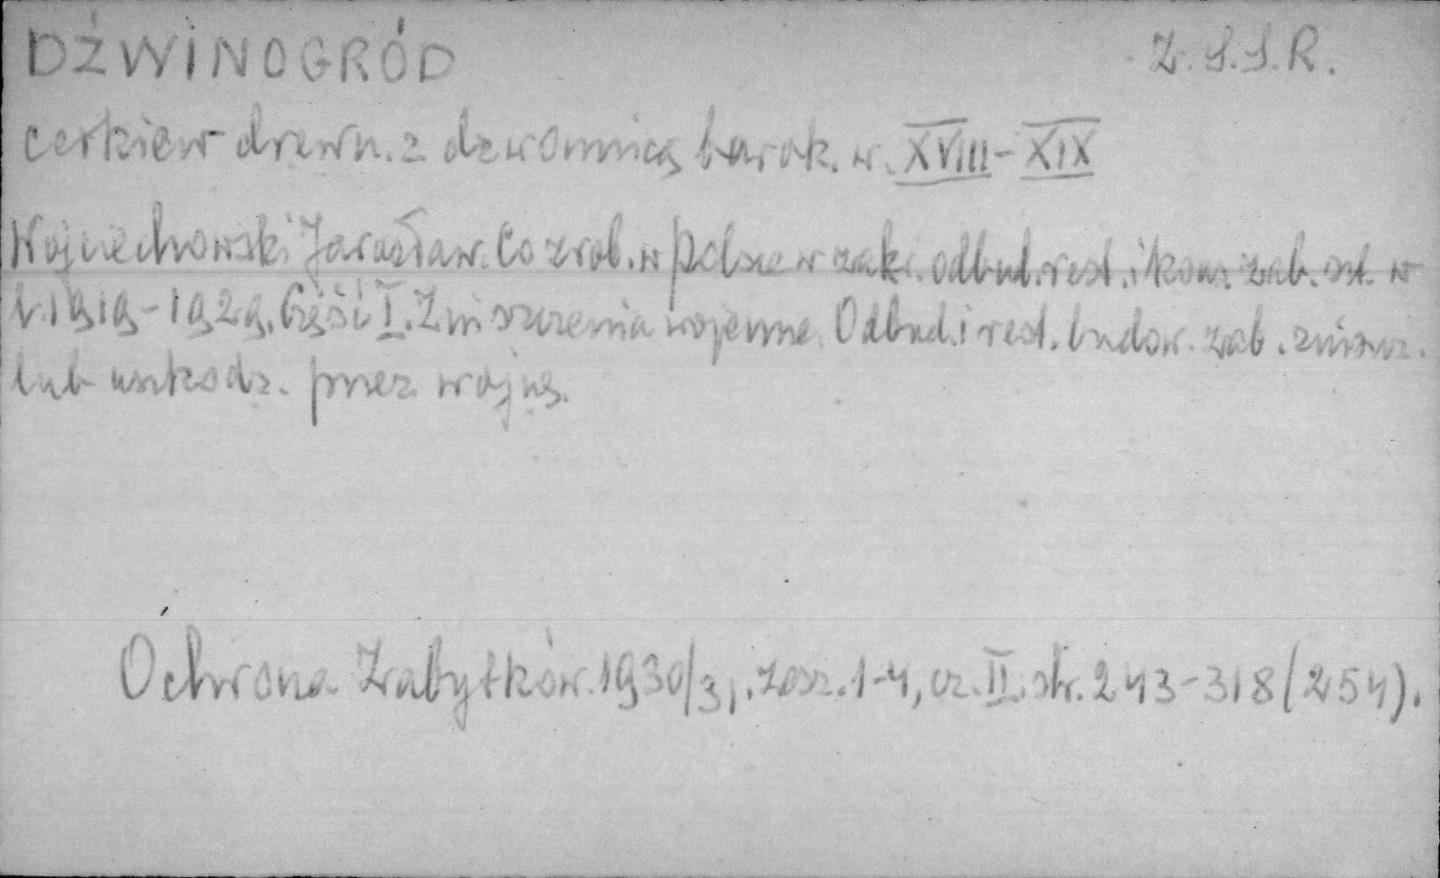 DŹWINOGRÓD Z.S.S.R.
cerkiew drewn. z dzwonnicą barok. w. XVIII-XIX
Wojciechowski Jarosław. Co zrob. w Polsce w zakr. odbud. rest. i kons. zab. szt. w
l. 1919-1929. Część I. Zniszczenia wojenne. Odbud. i rest. budow. zab. zniszcz.
lub uszkodz. przez wojnę.
Ochrona Zabytków. 1930/31. zesz. 1-4, cz. II. str. 243-318 (254).